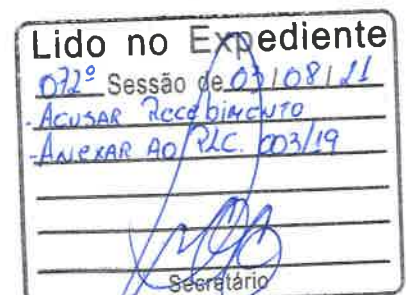 Lido no Expediente
072º Sessão de 03/08/21
- ACUSAR RECEBIMENTO
- ANEXAR AO PLC. 003/19
Secretário